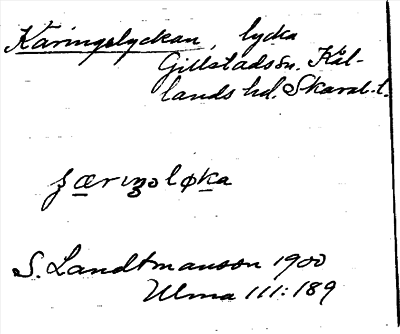 Käringslyckan, lycka
Gillstads sn. Kål-
lands hd. Skarab. l.
ʒærıŋsløka
S. Landtmanson 1900
Ulma 111:189